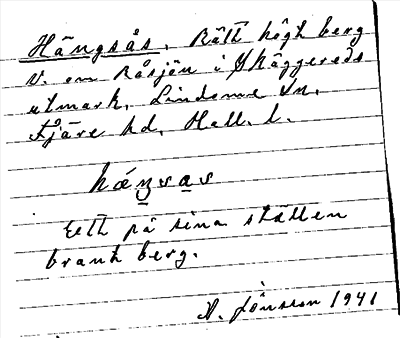 Hängsås. Rätt högt berg
V. om Råsjön i Skäggereds
utmark, Lindome sn.
Fjäre hd, Hall. l.
hǽŋsas
Ett på sina ställen
brant berg.
A. Jönsson 1941